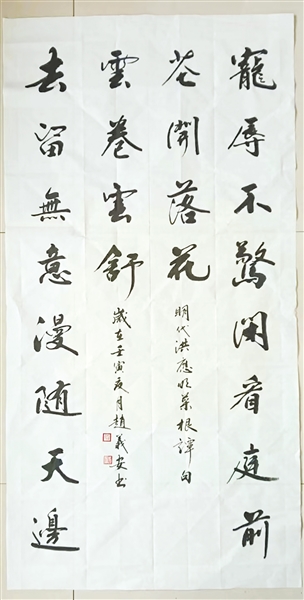 寵辱不驚閑看庭前
花開落花
明代洪應明菜根譚句
去留無意漫随天邊
雲卷雲舒
歲在壬寅夏月趙義安书